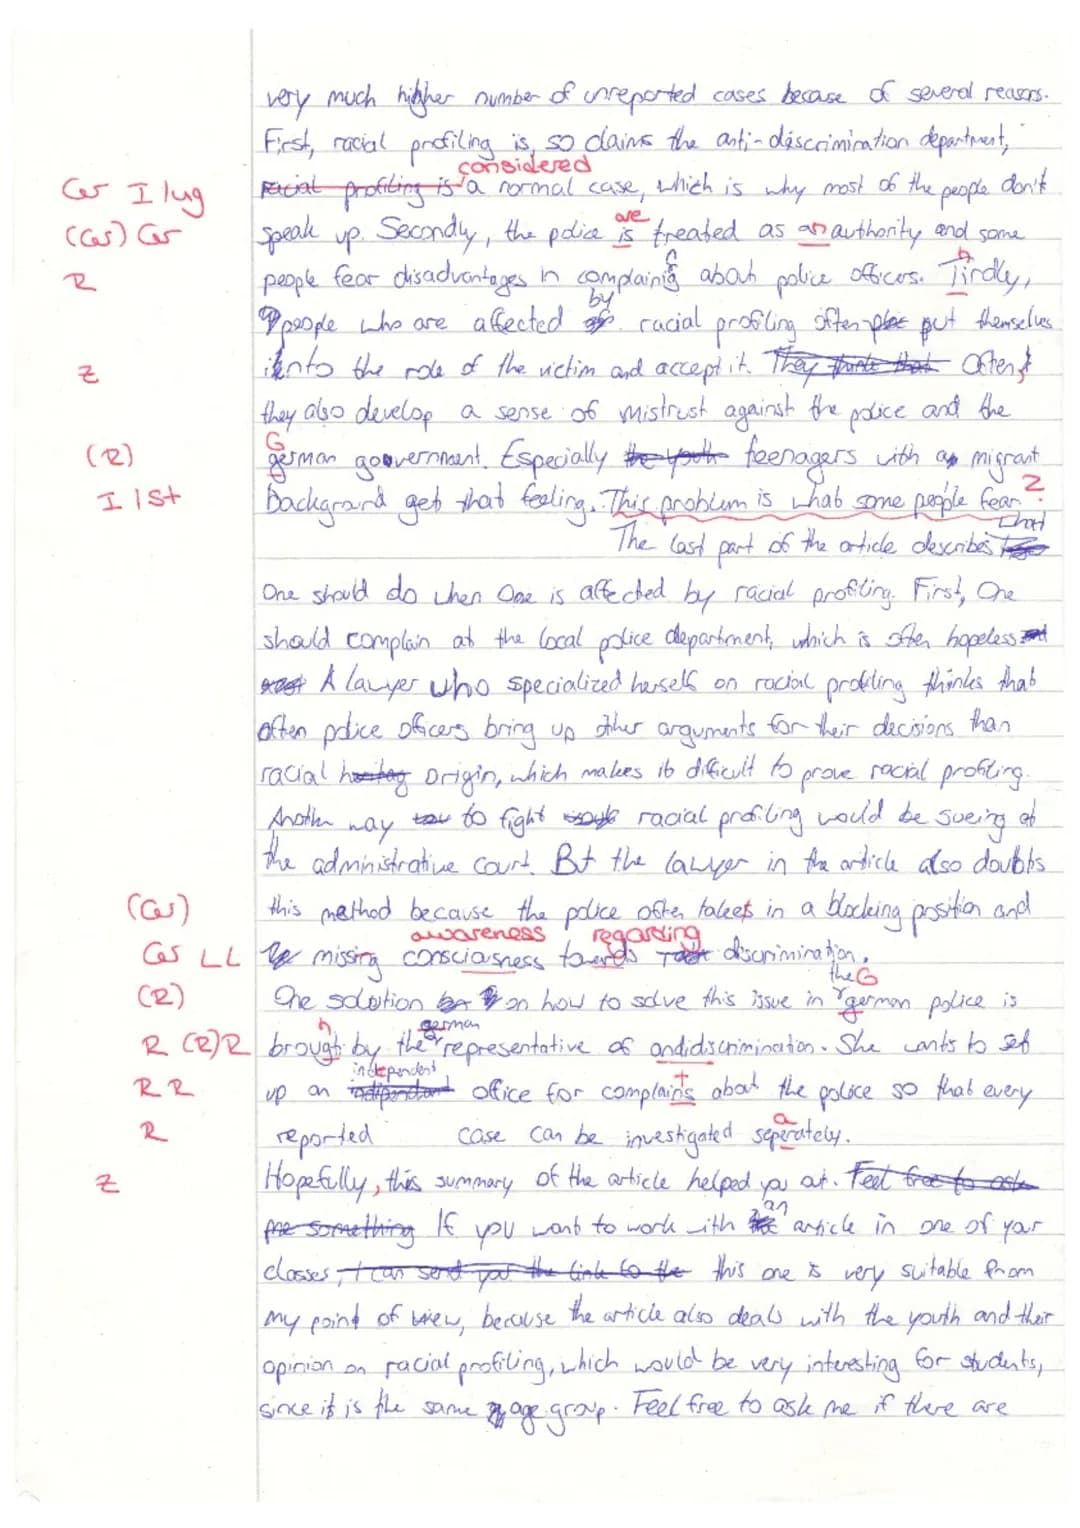 very much higher number of unreported cases becase of several reasons.
First, racial profiling is, so claims the anti-discrimination department,
considered
Ges I lug racial profiling is a normal case, which is why most of the people don't
are
(Ges) Ges speak up. Secondly, the police is treated as an authority and some
h
R people fear disadvantages in complaining about police officers. Tirdly,
by
people who are affected of racial profiling often put themselves
Z into the role of the victim and accept it. They think that Often,
they also develop a sense of mistrust against the police and the
G
(R) german government. Especially the youth teenagers with a migrant
?
I 1St background get that feeling. This problem is what some people fear.
what
The last part of the article describes
One should do when One is affected by racial profiling. First, One
should complain at the local police department, which is often hopeless
A lawyer who specialized herself on racial profiling thinks that
often police officers bring up other arguments for their decisions than
racial origin, which makes it difficult to prove racial profiling.
Another way to fight racial profiling would be sueing at
the administrative court. But the lawyer in the article also doubts
(Ges) this method because the police often takes in a blocking position and
awareness regarding
Ges LL missing consciasness towards discrimination.
the G
(R) One solution on how to solve this issue in german police is
h german
R (R) R brougt by the representative of andidiscrimination. She wants to set
independent t
R R up an office for complains about the police so that every
a
R reported case can be investigated seperately.
Z Hopefully, this summary of the article helped you out. Feel free to ask
an
me something If you want to work with article in one of your
classes, I can send you the link to the this one is very suitable from
my point of view, because the article also deals with the youth and their
opinion on racial profiling, which would be very interesting for students,
since it is the same age group. Feel free to ask me if there are